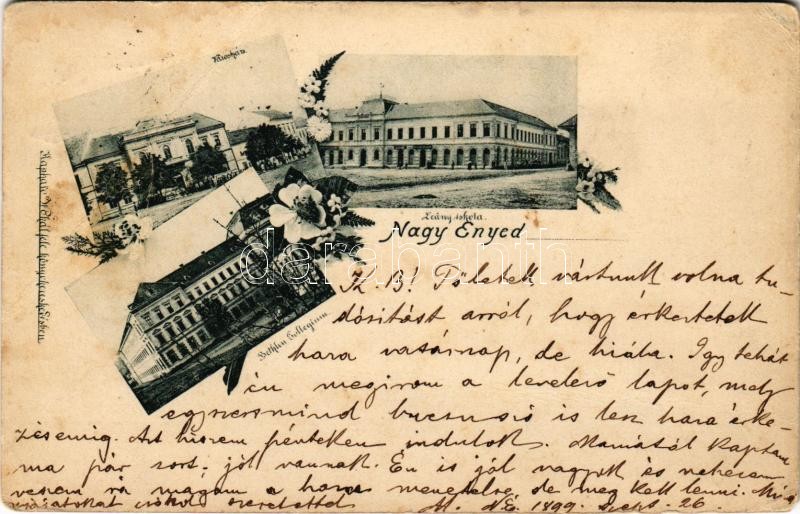 Városház.
Leány iskola.
Nagy Enyed
Bethlen Collegium
Kapható Wokál féle könyvkereskedésben.
darabanth
K. B! Töletek vártunk volna tu-
dósitást arról, hogy érkeztetek
haza vasárnap, de hiába. Igy tehát
én megirom a levelező lapot, mely
egyszersmind bucsuzó is lesz haza érke-
zésemig. Azt hiszem pénteken indulok. Mamától kaptam
ma pár sort, jól vannak. Én is jól vagyok és nehezen
veszem rá magam a haza menetelre, de meg kell lenni.
csókol szeretettel N. E. 1899. Szept. 26.